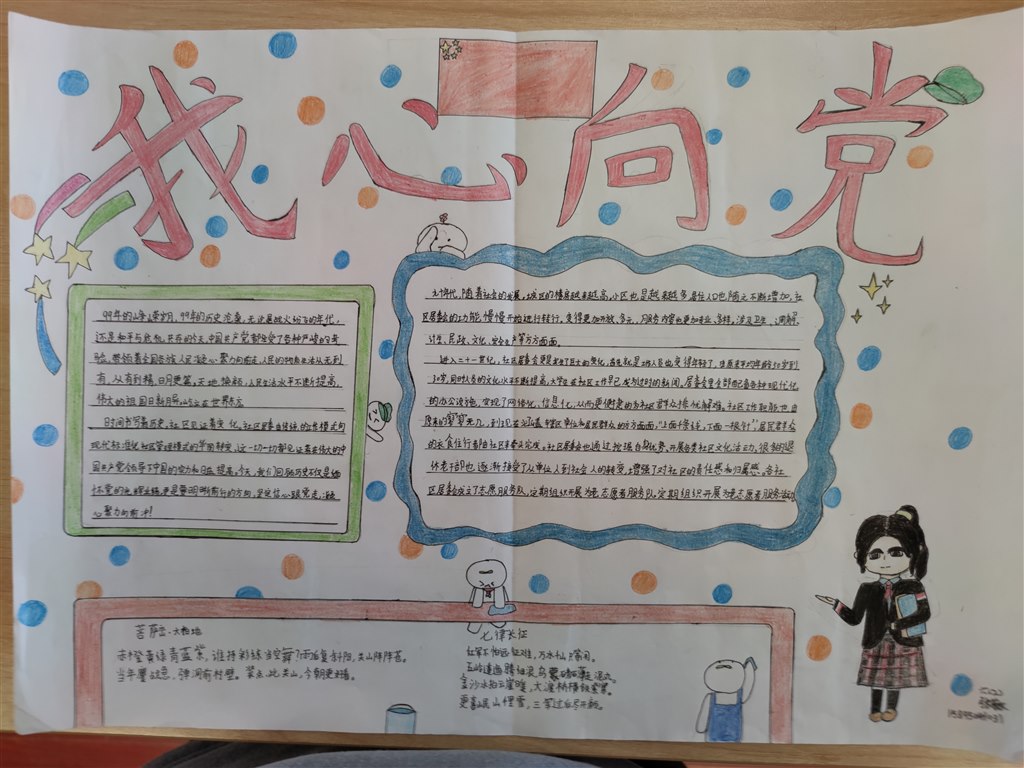 我心向党
99年的峥嵘岁月，99年的历史沧桑，无论是战火纷飞的年代，
还是和平与危机共存的今天，中国共产党都经受了各种严峻的考
验，带领着全国各族人民凝心聚力向前走，人民的物质生活从无到
有，从有到精，日月更篇，天地换颜，人民生活水平不断提高，
伟大的祖国日新月异屹立在世界东方
时间书写着历史，社区见证着变化。社区居委会
现代标准化和区管理模式的华丽转变，这一切一切都见证着伟大的中
国共产党领导下中国的实力和日益提高。今天，我们回顾历史不仅是缅
怀党的光辉业绩，更是要明晰前行的方向，坚定信心跟党走，凝心
聚力向前冲！
九十年代，随着社会的发展，城区的楼房越来越高，小区也是越来越多，居住人口也随之不断增加，社
区居委会的功能慢慢开始进行转行，变得更加开放、多元，服务内容也更加专业、多样，涉及卫生、调解、
计生、民政、文化、安全生产等方方面面。
进入二十一世纪，社区居委会更是发生了巨大的变化，首先就是工作人员也变得年轻了，年龄50岁到
30岁，同时人员的文化水平不断提高，大学生在社区工作早已成为过时的新闻，居委会里全部配备各种现代化
的办公设施，实现了网络化、信息化，从而更便捷的为社区群众排忧解难。社区工作职能也由
原来的寥寥无几，到现在为辖区单位和居民群众的方方面面，“上面千条线，下面一根针”居民群众
的衣食住行都由社区来帮忙完成。社区居委会也通过加强自身优势，开展各类社区文化活动，很多的退
休老干部也逐渐接受了从单位人到社会人的转变，增强了对社区的责任感和归属感。各社
区居委会成立了志愿服务队，定期组织开展为老志愿者服务队，定期组织开展为老志愿者服务活动
菩萨蛮·大柏地
赤橙黄绿青蓝紫，谁持彩练当空舞？雨后复斜阳，关山阵阵苍。
当年鏖战急，弹洞前村壁。装点此关山，今朝更好看。
七律长征
红军不怕远征难，万水千山只等闲。
五岭逶迤腾细浪，乌蒙磅礴走泥丸。
金沙水拍云崖暖，大渡桥横铁索寒。
更喜岷山千里雪，三军过后尽开颜。